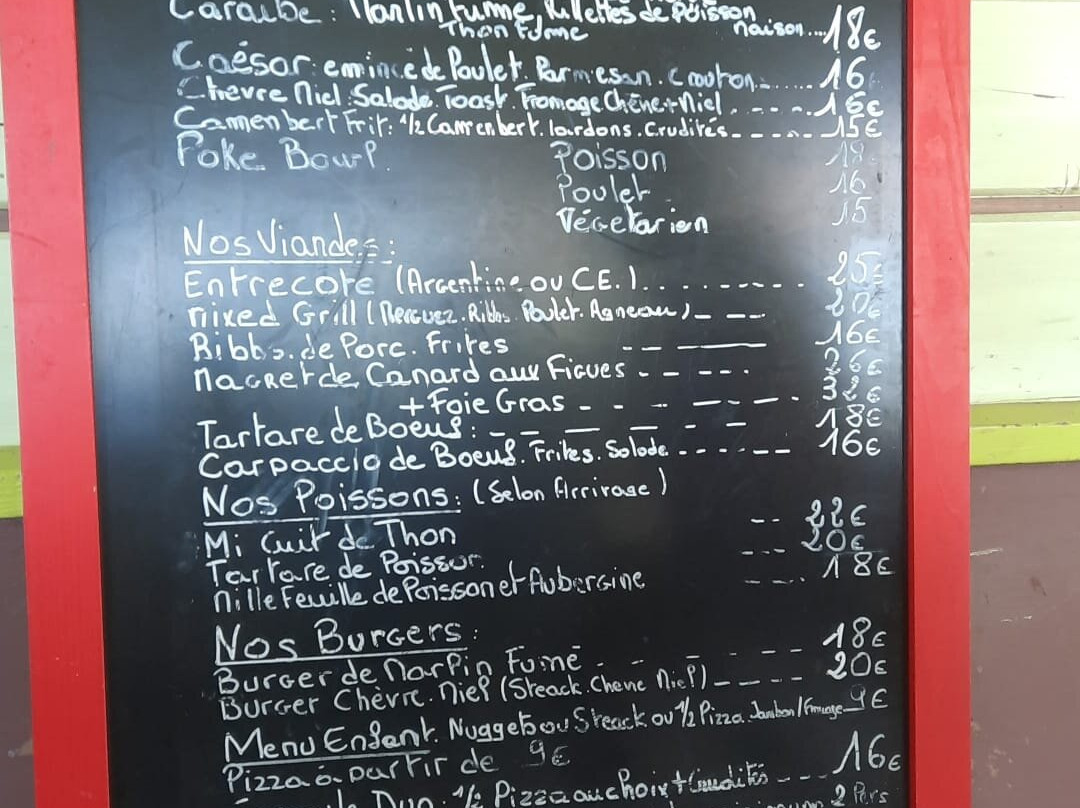 Caraïbe : Marlin Fumé, Rillettes de Poisson
Thon Fumé maison... 18€
Caésar : emincé de Poulet. Parmesan. Crouton....... 16
Chèvre Miel : Salade. Toast. Fromage Chèvre + Miel ---- 16€
Camenbert Frit : 1/2 Camenbert. lardons. Crudités----- 15€
Poke Bowl. Poisson 18.
Poulet 16
Végétarien 15
Nos Viandes :
Entrecote (Argentine ou C.E.)......... 25€
Mixed Grill (Merguez. Ribbs. Poulet. Agneau) --- 20€
Ribbs. de Porc. Frites --- 16€
Magret de Canard aux Figues ----. 26€
+ Foie Gras ------. 32€
Tartare de Boeuf : ------- 18€
Carpaccio de Boeuf. Frites. Salade ------ 16€
Nos Poissons : (Selon Arrivage)
Mi Cuit de Thon -- 22€
Tartare de Poisson --- 20€
Mille Feuille de Poisson et Aubergine ---. 18€
Nos Burgers :
Burger de Marlin Fumé ------ 18€
Burger Chèvre. Miel (Steack. Chèvre Miel) ---- 20€
Menu Enfant. Nuggets ou Steack ou 1/2 Pizza Jambon/Fromage 9€
Pizza à partir de 9€
Duo : 1/2 Pizza au choix + Crudités --- 16€
2 Pers